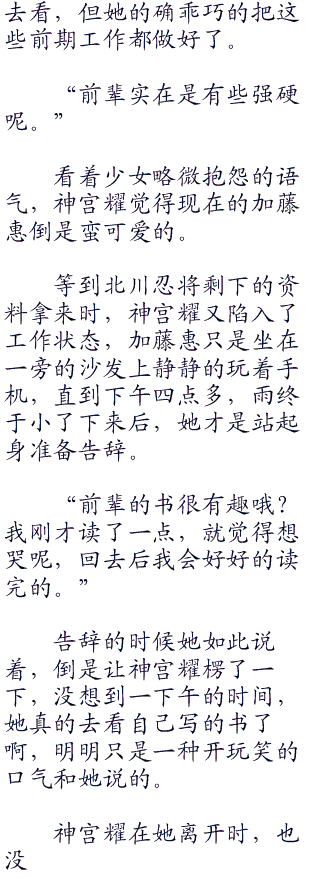 去看，但她的确乖巧的把这
些前期工作都做好了。
“前辈实在是有些强硬
呢。”
看着少女略微抱怨的语
气，神宫耀觉得现在的加藤
惠倒是蛮可爱的。
等到北川忍将剩下的资
料拿来时，神宫耀又陷入了
工作状态，加藤惠只是坐在
一旁的沙发上静静的玩着手
机，直到下午四点多，雨终
于小了下来后，她才是站起
身准备告辞。
“前辈的书很有趣哦？
我刚才读了一点，就觉得想
哭呢，回去后我会好好的读
完的。”
告辞的时候她如此说
着，倒是让神宫耀楞了一
下，没想到一下午的时间，
她真的去看自己写的书了
啊，明明只是一种开玩笑的
口气和她说的。
神宫耀在她离开时，也
没